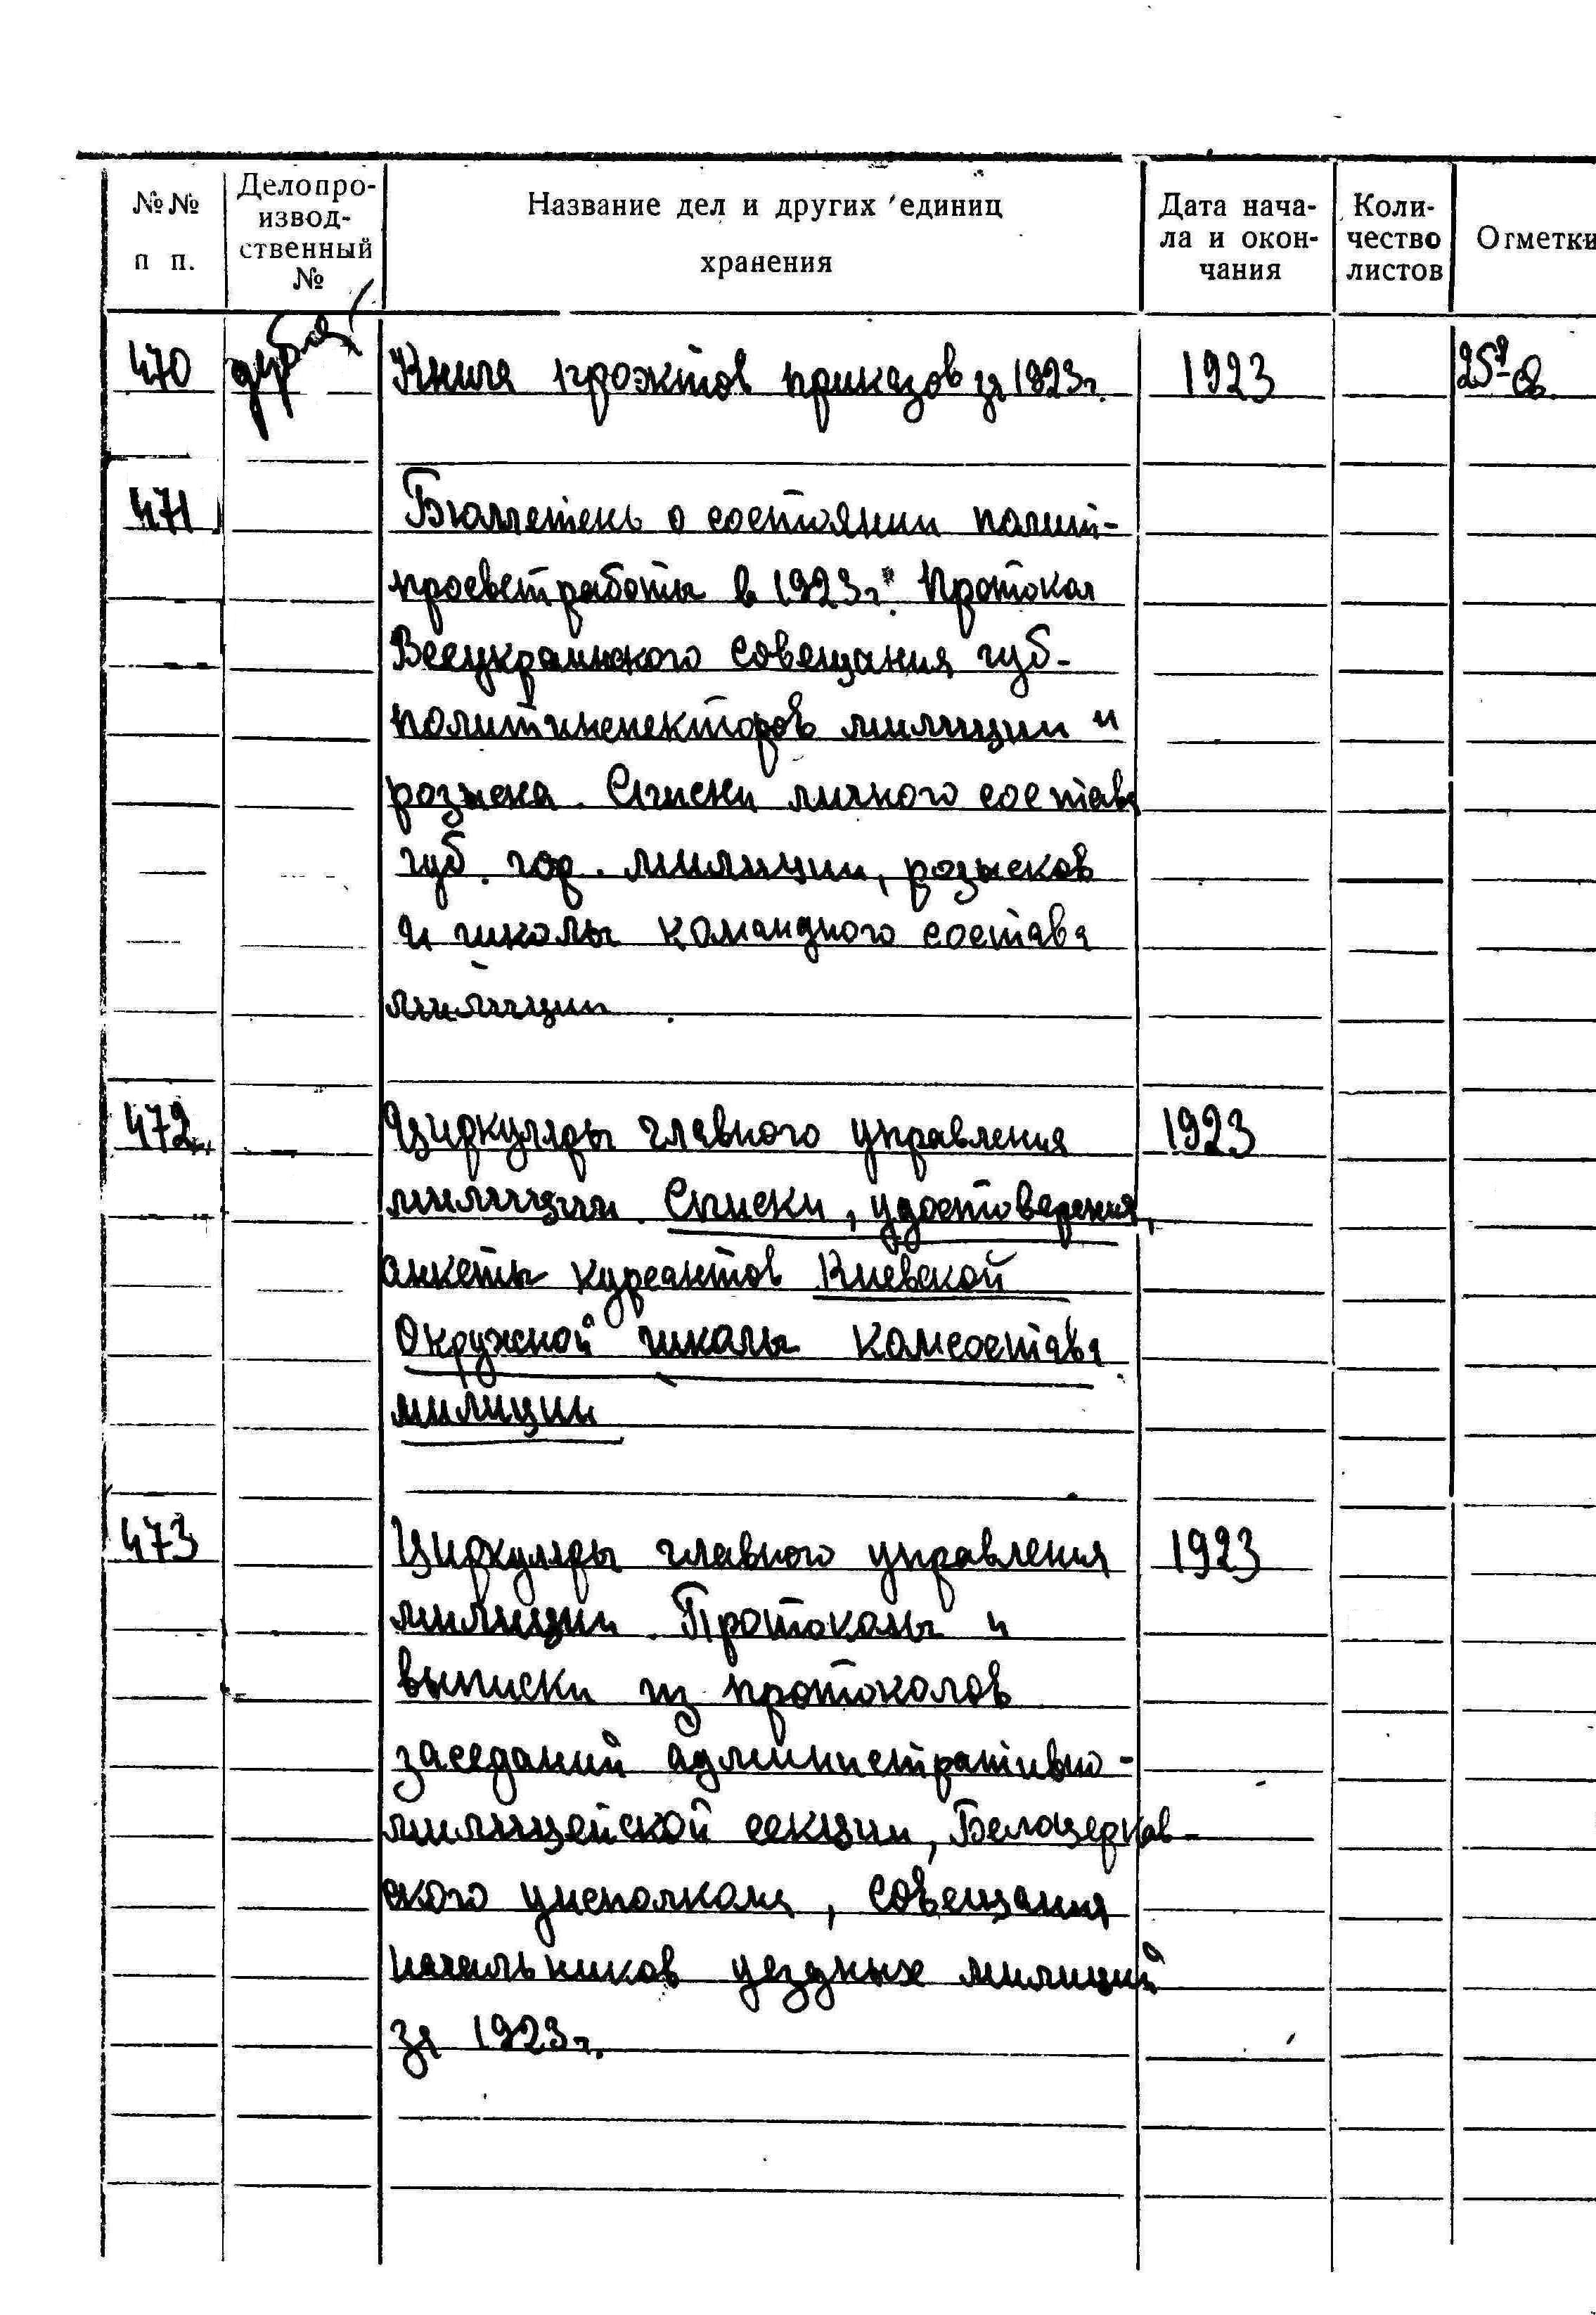 №№ п п.
Делопро-
извод-
ственный
№
Название дел и других единиц
хранения
Дата нача-
ла и окон-
чания
Коли-
чество
листов
Отметки
470 Книга проэктов приказов за 1923г. 1923
471 Бюллетень о состоянии полит-
просветработы в 1923г. Протокол
Всеукраинского совещания губ-
политинспекторов милиции и
розыска. Списки личного состава
губ. гор. милиции, розысков
и школы командного состава
милиции.
472 Циркуляры главного управления 1923
милиции. Списки, удостоверения,
анкеты курсантов Киевской
Окружной школы комсостава
милиции
473 Циркуляры главного управления 1923
милиции. Протоколы и
выписки из протоколов
заседаний административно-
милицейской секции, Белоцерков-
ского уисполкома, совещания
начальников уездных милиций
за 1923г.